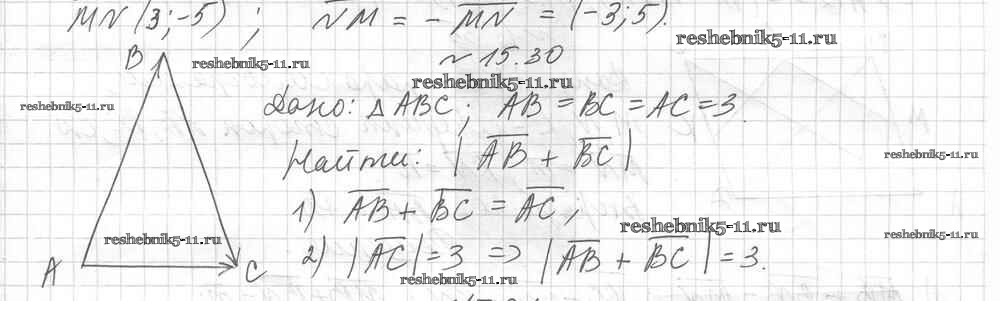 MN (3; -5) ; NM = - MN = (-3; 5).
reshebnik5-11.ru
B
reshebnik5-11.ru
№ 15.30
reshebnik5-11.ru
reshebnik5-11.ru
Дано: △ ABC; AB = BC = AC = 3.
reshebnik5-11.ru
Найти: | AB + BC |
1) AB + BC = AC ;
reshebnik5-11.ru
reshebnik5-11.ru
reshebnik5-11.ru
2) |AC| = 3 => | AB + BC | = 3.
A
C
reshebnik5-11.ru